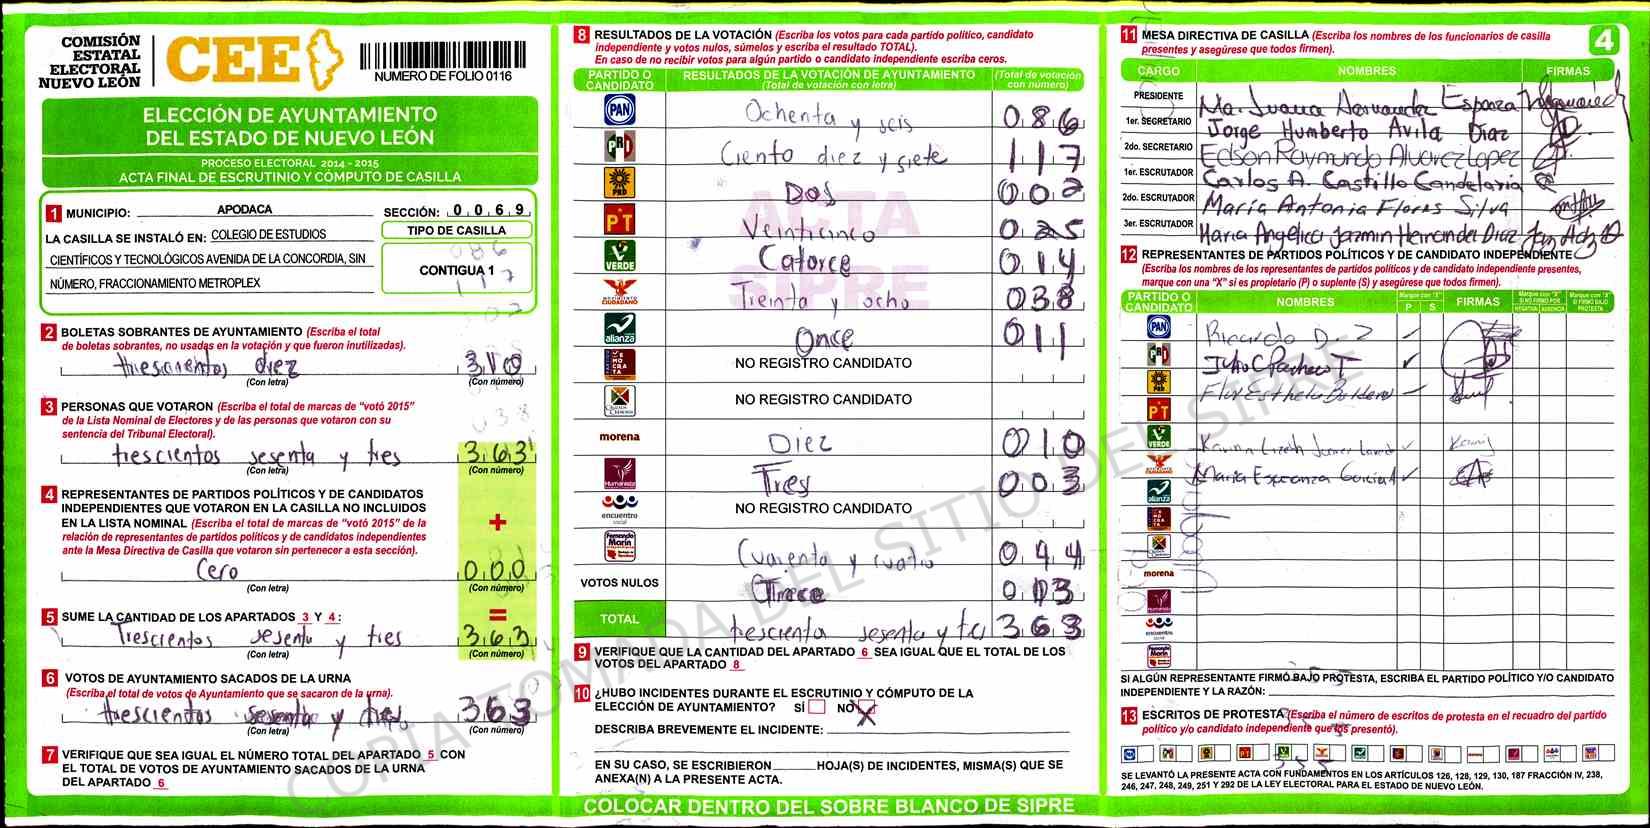 COMISIÓN
ESTATAL
ELECTORAL
NUEVO LEÓN
CEE
NUMERO DE FOLIO 0116
ELECCIÓN DE AYUNTAMIENTO
DEL ESTADO DE NUEVO LEÓN
PROCESO ELECTORAL 2014 - 2015
ACTA FINAL DE ESCRUTINIO Y CÓMPUTO DE CASILLA
1 MUNICIPIO: APODACA SECCIÓN: 0 0 6 9
LA CASILLA SE INSTALÓ EN: COLEGIO DE ESTUDIOS
CIENTÍFICOS Y TECNOLÓGICOS AVENIDA DE LA CONCORDIA, SIN
NÚMERO, FRACCIONAMIENTO METROPLEX
TIPO DE CASILLA
CONTIGUA 1
2 BOLETAS SOBRANTES DE AYUNTAMIENTO (Escriba el total
de boletas sobrantes, no usadas en la votación y que fueron inutilizadas).
trescientos diez 310
(Con letra) (Con número)
3 PERSONAS QUE VOTARON (Escriba el total de marcas de "votó 2015"
de la Lista Nominal de Electores y de las personas que votaron con su
sentencia del Tribunal Electoral).
trescientos sesenta y tres 363
(Con letra) (Con número)
4 REPRESENTANTES DE PARTIDOS POLÍTICOS Y DE CANDIDATOS
INDEPENDIENTES QUE VOTARON EN LA CASILLA NO INCLUIDOS
EN LA LISTA NOMINAL (Escriba el total de marcas de "votó 2015" de la
relación de representantes de partidos políticos y de candidatos independientes
ante la Mesa Directiva de Casilla que votaron sin pertenecer a esta sección).
+
Cero 000
(Con letra) (Con número)
5 SUME LA CANTIDAD DE LOS APARTADOS 3 Y 4: =
Trescientos sesenta y tres 363
(Con letra) (Con número)
6 VOTOS DE AYUNTAMIENTO SACADOS DE LA URNA
(Escriba el total de votos de Ayuntamiento que se sacaron de la urna).
trescientos sesenta y tres 363
(Con letra) (Con número)
7 VERIFIQUE QUE SEA IGUAL EL NÚMERO TOTAL DEL APARTADO 5 CON
EL TOTAL DE VOTOS DE AYUNTAMIENTO SACADOS DE LA URNA
DEL APARTADO 6
8 RESULTADOS DE LA VOTACIÓN (Escriba los votos para cada partido político, candidato
independiente y votos nulos, súmelos y escriba el resultado TOTAL).
En caso de no recibir votos para algún partido o candidato independiente escriba ceros.
PARTIDO O CANDIDATO RESULTADOS DE LA VOTACIÓN DE AYUNTAMIENTO (Total de votación con letra) (Total de votación con número)
PAN Ochenta y seis 086
PRI Ciento diez y siete 117
PRD Dos 002
PT Veinticinco 025
VERDE Catorce 014
MOVIMIENTO CIUDADANO Treinta y ocho 038
alianza Once 011
DEMOCRATA NO REGISTRO CANDIDATO
NO REGISTRO CANDIDATO
morena Diez 010
Humanista Tres 003
encuentro social NO REGISTRO CANDIDATO
Fernando Marín Cuarenta y cuatro 044
VOTOS NULOS Trece 013
TOTAL trescienta sesenta y 363
ACTA
SIPRE
9 VERIFIQUE QUE LA CANTIDAD DEL APARTADO 6 SEA IGUAL QUE EL TOTAL DE LOS
VOTOS DEL APARTADO 8
10 ¿HUBO INCIDENTES DURANTE EL ESCRUTINIO Y CÓMPUTO DE LA
ELECCIÓN DE AYUNTAMIENTO? SÍ NO X
DESCRIBA BREVEMENTE EL INCIDENTE:
EN SU CASO, SE ESCRIBIERON HOJA(S) DE INCIDENTES, MISMA(S) QUE SE
ANEXA(N) A LA PRESENTE ACTA.
COLOCAR DENTRO DEL SOBRE BLANCO DE SIPRE
11 MESA DIRECTIVA DE CASILLA (Escriba los nombres de los funcionarios de casilla
presentes y asegúrese que todos firmen).
4
CARGO NOMBRES FIRMAS
PRESIDENTE Ma. Juana Hernandez Esparza
1er. SECRETARIO Jorge Humberto Avila Diaz
2do. SECRETARIO Edson Raymundo Alvarez Lopez
1er. ESCRUTADOR Carlos A. Castillo Candelaria
2do. ESCRUTADOR María Antonia Flores Silva
3er. ESCRUTADOR Maria Angelica Jazmin Hernandez Diaz
12 REPRESENTANTES DE PARTIDOS POLÍTICOS Y DE CANDIDATO INDEPENDIENTE
(Escriba los nombres de los representantes de partidos políticos y de candidato independiente presentes,
marque con una "X" si es propietario (P) o suplente (S) y asegúrese que todos firmen).
PARTIDO O CANDIDATO NOMBRES Marque con "X" P S FIRMAS Marque con "X" SI NO FIRMÓ POR: NEGATIVA AUSENCIA Marque con "X" SI FIRMÓ BAJO PROTESTA
PAN Ricardo D
PRI Julio C Pacheco T
PRD Flor Esthela
PT
VERDE Karina Lizeth
María Esperanza
alianza
morena
Humanista
encuentro social
Fernando Marín
SI ALGÚN REPRESENTANTE FIRMÓ BAJO PROTESTA, ESCRIBA EL PARTIDO POLÍTICO Y/O CANDIDATO
INDEPENDIENTE Y LA RAZÓN:
13 ESCRITOS DE PROTESTA (Escriba el número de escritos de protesta en el recuadro del partido
político y/o candidato independiente que los presentó).
SE LEVANTÓ LA PRESENTE ACTA CON FUNDAMENTOS EN LOS ARTÍCULOS 126, 128, 129, 130, 187 FRACCIÓN IV, 238,
246, 247, 248, 249, 251 Y 292 DE LA LEY ELECTORAL PARA EL ESTADO DE NUEVO LEÓN.
COPIA TOMADA DEL SITIO DEL SIPRE